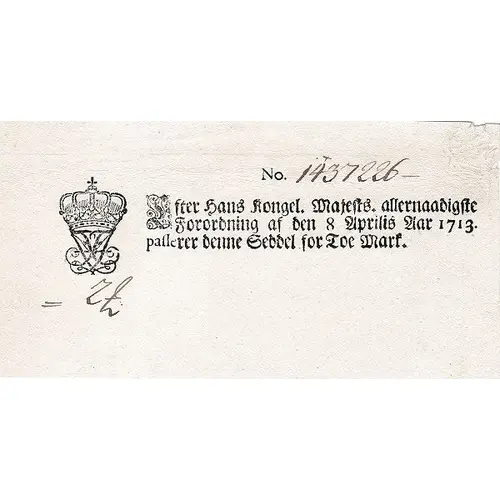 No. 1437226
Efter Hans Kongel. Majests. allernaadigste
Forordning af den 8 Aprilis Aar 1713.
passerer denne Seddel for Toe Mark.
= 2